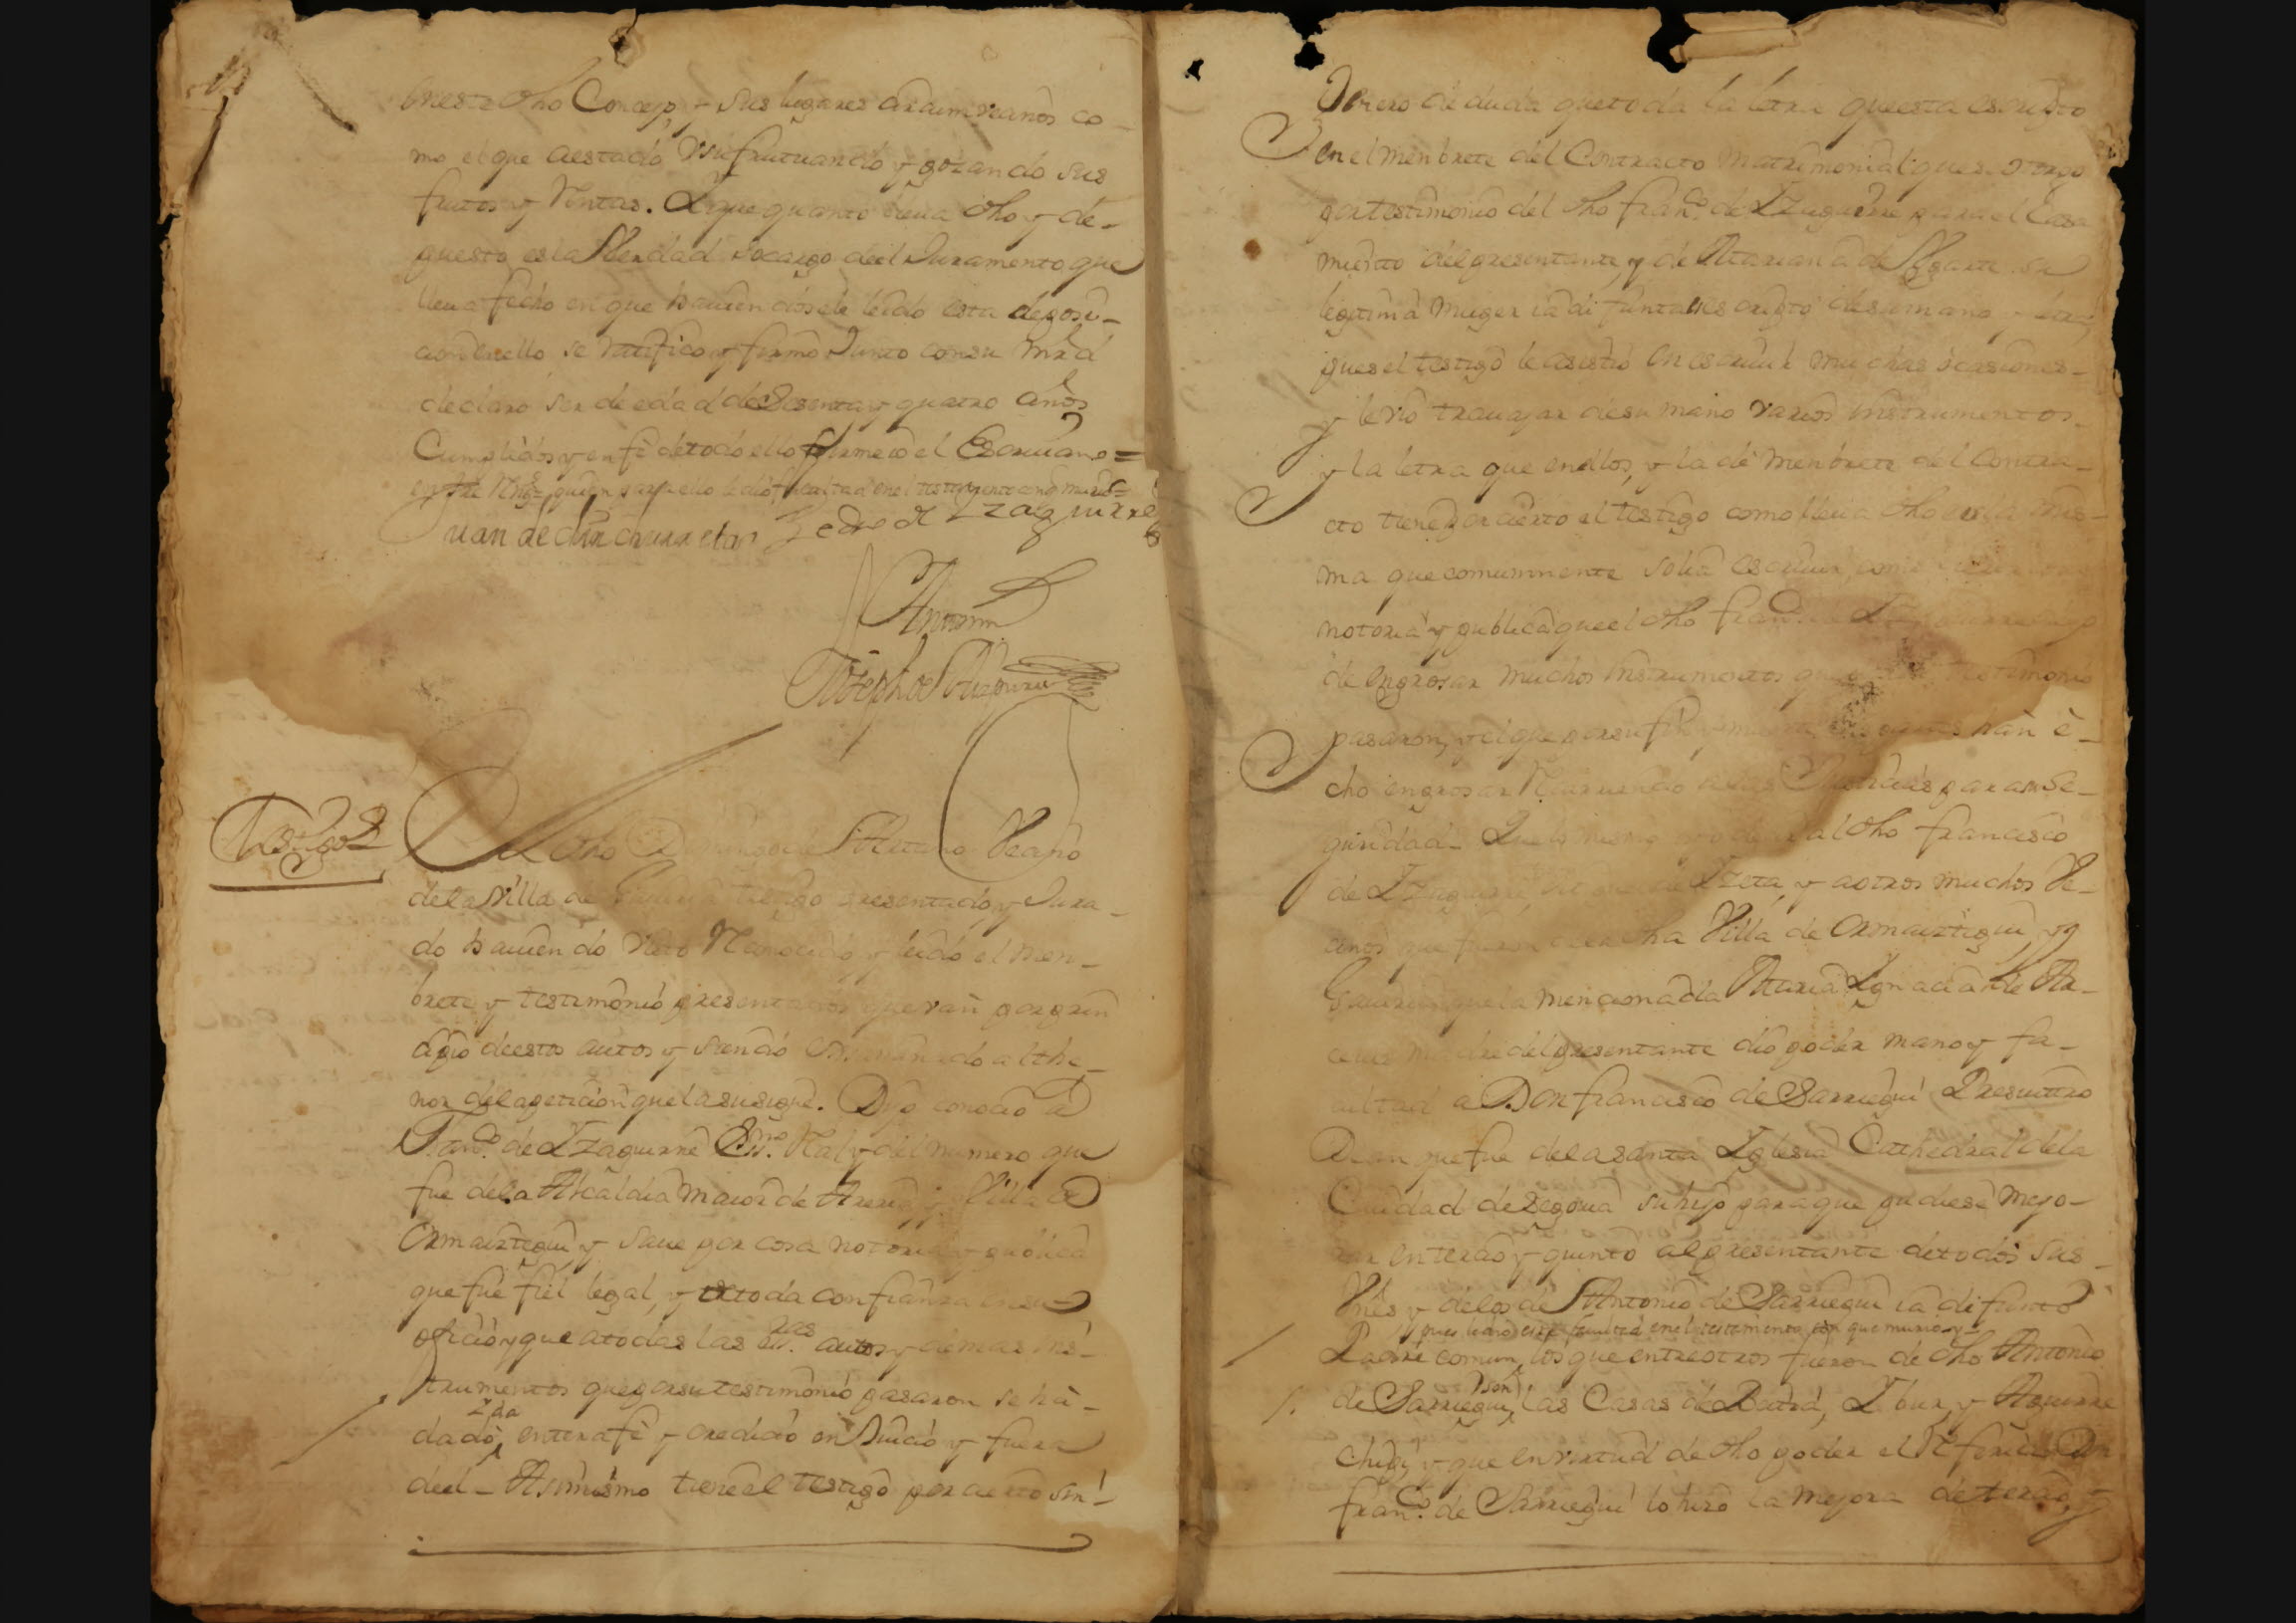 en este dho Concejo y sus lugares circumvecanos co-
mo el que a estado Usufrutuando y gozando sus
frutos y Rentas. Y que quanto lleua dho y de-
puesto es la Verdad socargo del Juramento que
lleua fecho en que hauiendosele leido esta deposi-
cion en ello se ratifico y firmo Junto con su mrd
declaro ser de edad de sesenta y quatro años
Cumplidos y en fe de todo ello firme io el Escriuano =
quien para ello le dio facultad en el testamento con q murio =
Juan de Pedro de Yzaguirre
Antemi
Joseph de
Testigo 2
El dho Vecino
de la Villa de testigo presentado y Jura-
do hauiendo Visto Reconocido y leido el men-
brete y testimonio presentados que van por prin
cipio de estos autos y siendo examinado al the-
nor de la peticion que la susigue. Dijo conocio a
Franco. de Yzaguirre Essno. Real y del numero que
fue de la Alcaldia maior de Areria y Villa de
Ormaiztegui y saue por cosa notoria y publica
que fue fiel legal, y de toda confianza en su
oficio y que a todas las ess.ras autos y demas ins-
trumentos que por su testimonio pasaron se ha-
dado y da entera fe y credito en Juicio y fuera
de el - Asimismo tiene el testigo por cierto sin-
Genero de duda que toda la letra que esta escripto
en el menbrete del Contracto Matrimonial que se otorgo
por testimonio del dho franco. de Yzaguirre para el Casa
miento del presentante, y de Mariana de Ugarte su
legitima muger ia difunta es escripto de su mano y letra,
pues el testigo le asistio en escriuir muchas ocasiones-
y le vio trauajar de su mano varios instrumentos.
y la letra que en ellos, y la de menbrete del Contra-
cto tiene por cierto el testigo como lleua dho es la mis-
ma que comunmente solia escriuir, como
notoria y publica que el dho franco. de Yzaguirre
de engrosar muchos instrumentos que testimonio
pasaron, y el que por su fin y muerte las partes han e-
cho engrosar Recurriendo a las Justicias para su se-
guridad - Que lo mismo al dho francisco
de Yzaguirre, de Yzeta, y a otros muchos Ve-
cinos que fueron de dha Villa de Ormaiztegui oyo
que la mencionada Maria Ygnacia de Ar-
madre del presentante dio poder mano y fa-
cultad a Don francisco de Sarriegui Presuitero
Dean que fue de la santa Yglesia Cathedral de la
Ciudad de Segouia su hijo para que pudiese mejo-
rar en tercio y quinto al presentante de todos sus
Vienes y de los de Antonio de Sarriegui ia difunto
pues le dio esta facultad en el testamento con que murio y
Padre comun, los que entre otros fueron de dho Antonio
de Sarriegui, son las Casas de Ybur, y Aguirre
chiqui, y que en virtud de dho poder el Referido Dn
franco. de Sarriegui lo hizo la mejora de tercio, y